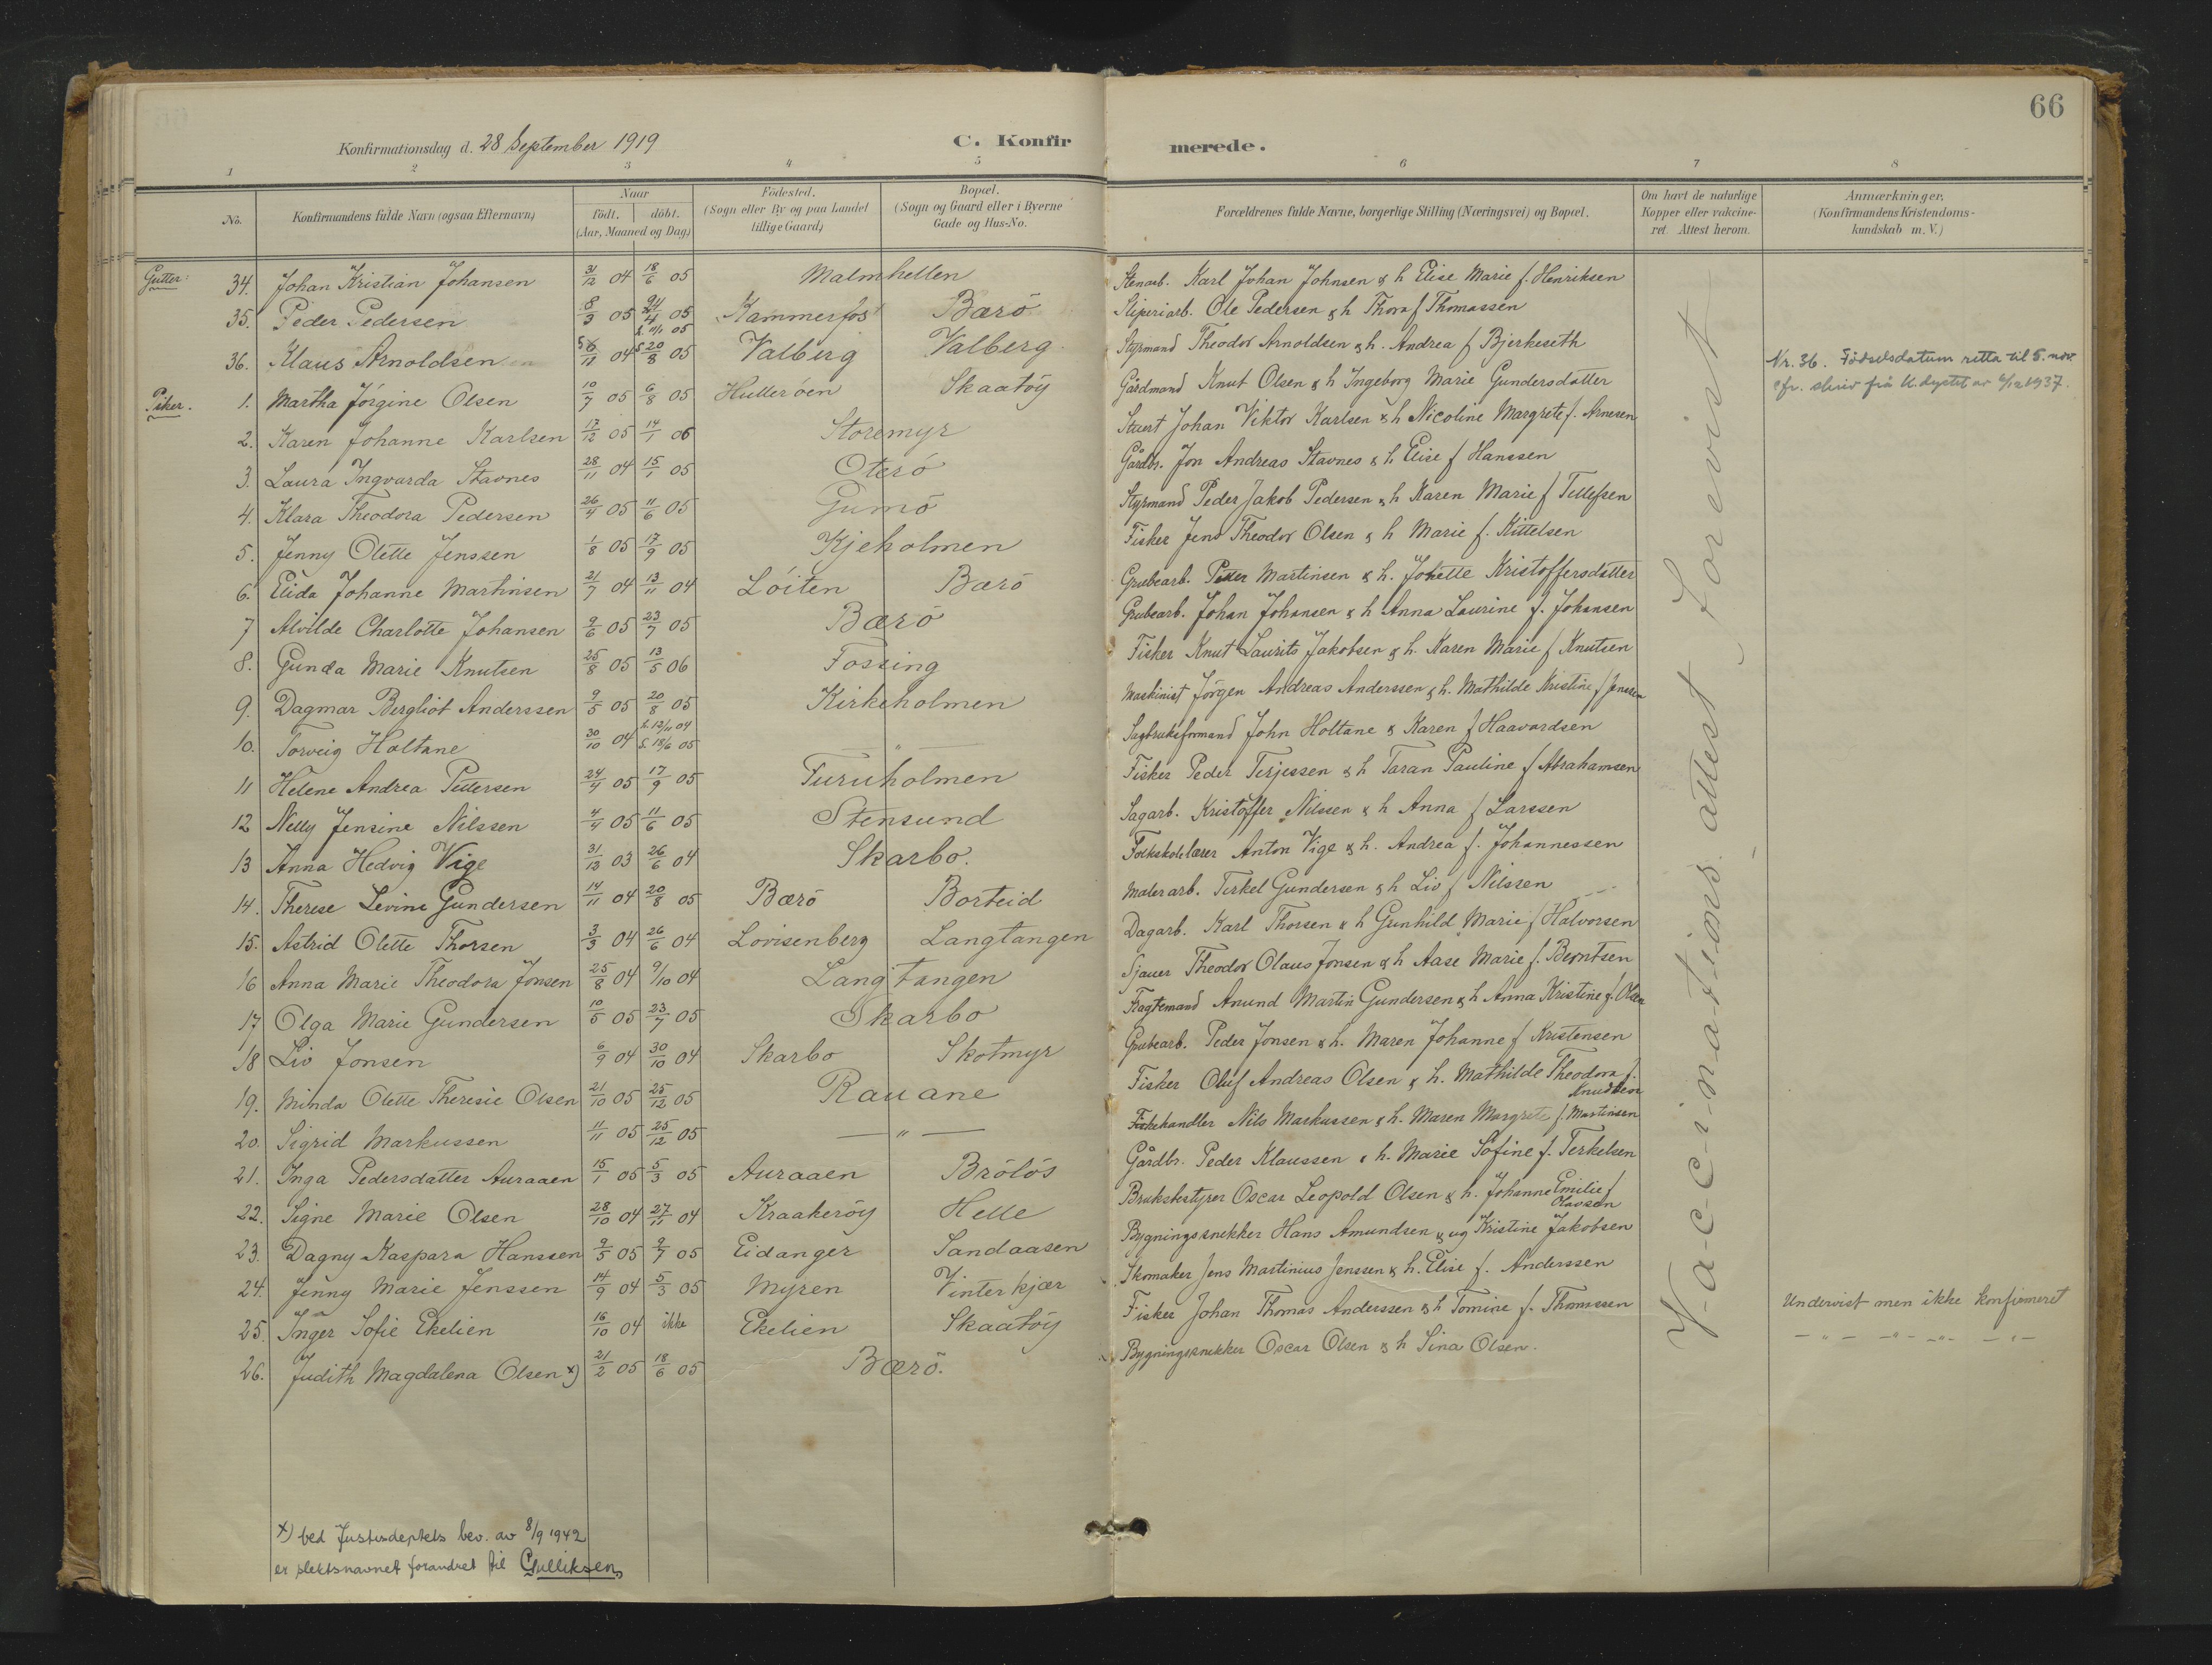 66
Konfirmationsdag d. 28 September 1919
C. Konfirmerede.
1 2 3 4 5 6 7 8
No. Konfirmandens fulde Navn (ogsaa Efternavn) Naar födt. döbt. (Aar, Maaned og Dag) Födested. (Sogn eller By og paa Landet tillige Gaard) Bopæl. (Sogn og Gaard eller i Byerne Gade og Hus-No. Forældrenes fulde Navne, borgerlige Stilling (Næringsvei) og Bopæl. Om havt de naturlige Kopper eller vakcineret. Attest herom. Anmærkninger. (Konfirmandens Kristendomskundskab m. V.)
Gutter: 34. Johan Kristian Johansen 31/12 04 18/6 05 Malmhellen Stenarb. Karl Johan Johnsen & h Elise Marie f. Henriksen
35. Peder Pedersen 8/3 05 24/4 05 Kammerfos Barö Sliperiarb. Ole Pedersen & h Thora f Thomassen
36. Klaus Arnoldsen 5 6/11 04 20/8 05 Valberg Valberg Styrmand Theodor Arnoldsen & h. Andrea f Bjerkeseth Nr. 36. Födselsdatum retta til 5. nov.
Piker. 1. Martha Jörgine Olsen 10/7 05 6/8 05 Hulleröen Skaatöy Gårdmand Knut Olsen & h Ingeborg Marie Gundersdatter
2. Karen Johanne Karlsen 17/12 05 14/1 06 Storemyr Stuert Johan Viktor Karlsen & h Nicoline Margrete f. Arnesen
3. Laura Ingvarda Stavnes 28/11 04 15/1 05 Oterö Gårdbr. Jon Andreas Stavnes & h. Elise f Hanssen
4. Klara Theodora Pedersen 26/4 05 11/6 05 Gumö Styrmand Peder Jakob Pedersen & h Karen Marie f Tellefsen
5. Jenny Olette Jenssen 1/8 05 17/9 05 Kjeholmen Fisker Jens Theodor Olsen & h Marie f. Kittelsen
6. Elida Johanne Martinsen 21/7 04 13/11 04 Löiten Barö Grubearb. Peter Martinsen & h. Johette Kristoffersdatter
7 Alvilde Charlotte Johansen 9/6 05 23/7 05 Barö Grubearb. Johan Johansen & h Anna Laurine f. Johansen
8. Gunda Marie Knutsen 25/8 05 13/5 06 Fossing Fisker Knut Laurits Jakobsen & h. Karen Marie f Knutsen
9. Dagmar Bergliot Anderssen 9/5 05 20/8 05 Kirkeholmen Maskinist Jörgen Andreas Anderssen & h. Mathilde Kristine f Jenssen
10. Torveig Holtane 30/10 04 h. 12/11 04 S. 18/6 05 — " — Sagbruksformand John Holtane & Karen f Haavardsen
11 Helene Andrea Pettersen 24/4 05 17/9 05 Furuholmen Fisker Peder Terjessen & h Taran Pauline f Abrahamsen
12 Nelly Jensine Nilssen 4/4 05 11/6 05 Stensund Sagarb. Kristoffer Nilssen & h Anna f Larssen
13 Anna Hedvig Vige 31/12 03 26/6 04 Skarbo. Folkskolelærer Anton Vige & h. Andrea f. Johannessen
14. Therese Levine Gundersen 14/11 04 20/8 05 Barö Borteid Malerarb. Terkel Gundersen & h Liv f Nilssen
15. Astrid Olette Thorsen 3/3 04 26/6 04 Lovisenberg Langtangen Dagarb. Karl Thorsen & h Gunhild Marie f Halvorsen
16 Anna Marie Theodora Jonsen 25/8 04 9/10 04 Langtangen Sjauer Theodor Olaus Jonsen & h Aase Marie f. Berntsen
17 Olga Marie Gundersen 10/5 05 23/7 05 Skarbo Fragtemand Anund Martin Gundersen & h Anna Kristine f. Olsen
18 Liv Jonsen 6/9 04 30/10 04 Skarbo Skotmyr Grubearb. Peder Jonsen & h. Maren Johanne f Kristensen
19. Minda Olette Theresie Olsen 21/10 05 25/12 05 Rauane Fisker Oluf Andreas Olsen & h. Mathilde Theodora f. Knudsen
20. Sigrid Markussen 11/11 05 25/12 05 — " — Fiskehandler Nils Markussen & h. Maren Margrete f. Martinsen
21. Inga Pedersdatter Auraaen 15/1 05 5/3 05 Auraaen Brölös Gårdbr. Peder Klaussen & h. Marie Sofine f. Terkelsen
22. Signe Marie Olsen 28/10 04 27/11 04 Kraakeröy Helle Bruksbestyrer Oscar Leopold Olsen & h. Johanne Emilie f Olavsen
23. Dagny Kaspara Hanssen 9/5 05 9/7 05 Eidanger Sandaasen Bygningssnekker Hans Amundsen & ug Kristine Jakobsen
24. Jenny Marie Jenssen 14/9 04 5/3 05 Myren Vinterkjær Skomaker Jens Martinius Jenssen & h. Elise f. Anderssen
25. Inger Sofie Ekelien 16/10 04 ikke Ekelien Skaatöy Fisker Johan Thomas Anderssen & h Tomine f. Thomassen Undervist men ikke konfirmeret
26. Judith Magdalena Olsen x) 21/2 05 18/6 05 Barö. Bygningssnekker Oscar Olsen & h Sina Olsen. — " — — " — — " — — " —
V-a-c-c-i-n-a-t-i-o-n-s. attest forevist
x) ved Justisdeptets bev. av 8/9 1942
er slektsnavnet forandret til Gulliksen